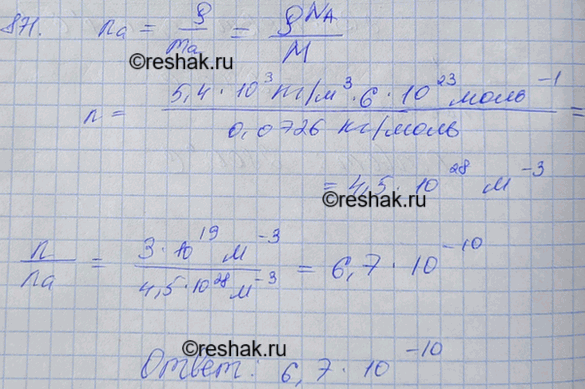 871. na = ρ/ma = ρNA/M
©reshak.ru
n = 5,4 · 10³ кг/м³ · 6 · 10²³ моль⁻¹ / 0,0726 кг/моль =
= 4,5 · 10²⁸ м⁻³
©reshak.ru
n/na = 3 · 10¹⁹ м⁻³ / 4,5 · 10²⁸ м⁻³ = 6,7 · 10⁻¹⁰
©reshak.ru
Ответ: 6,7 · 10⁻¹⁰